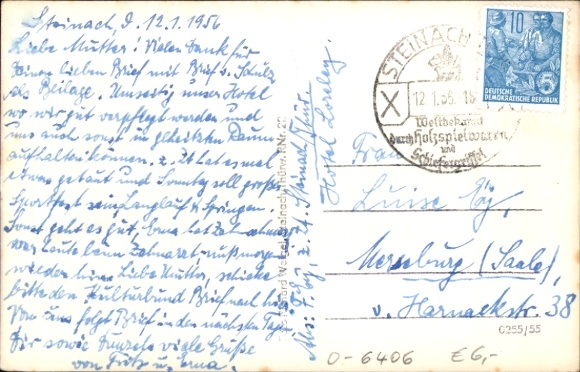 Steinach, d. 12.1.1956
Liebe Mutter! Vielen Dank für
Deinen lieben Brief mit Brief v. Schulz
als Beilage. Umseitig unser Hotel
wo wir gut verpflegt werden und
uns auch sonst in geheizten Raum
aufhalten können. z. Zt. ist es mal
etwas getaut und Sonntag soll großes
Sportfest sein Langlauf u. Springen.
Sonst geht es gut, Erna hat Zahnschmerz
war heute beim Zahnarzt muß morgen
wieder hin. Liebe Mutter, schicke
bitte den Kulturbund Brief nach hier
Von uns folgt Brief in den nächsten Tagen
Dir sowie Funzels viele Grüße
von Fritz u. Erna.
Abs: F. z. Zt. Steinach Thür.
Hotel Loreley
STEINACH
12.1.56.-18
Weltbekannt
durch Holzspielwaren
und
Schiefergriffel
10
5
DEUTSCHE
DEMOKRATISCHE REPUBLIK
Frau
Luise
Merseburg (Saale),
v. Harnackstr. 38
0255/55
0-6406
€6,-